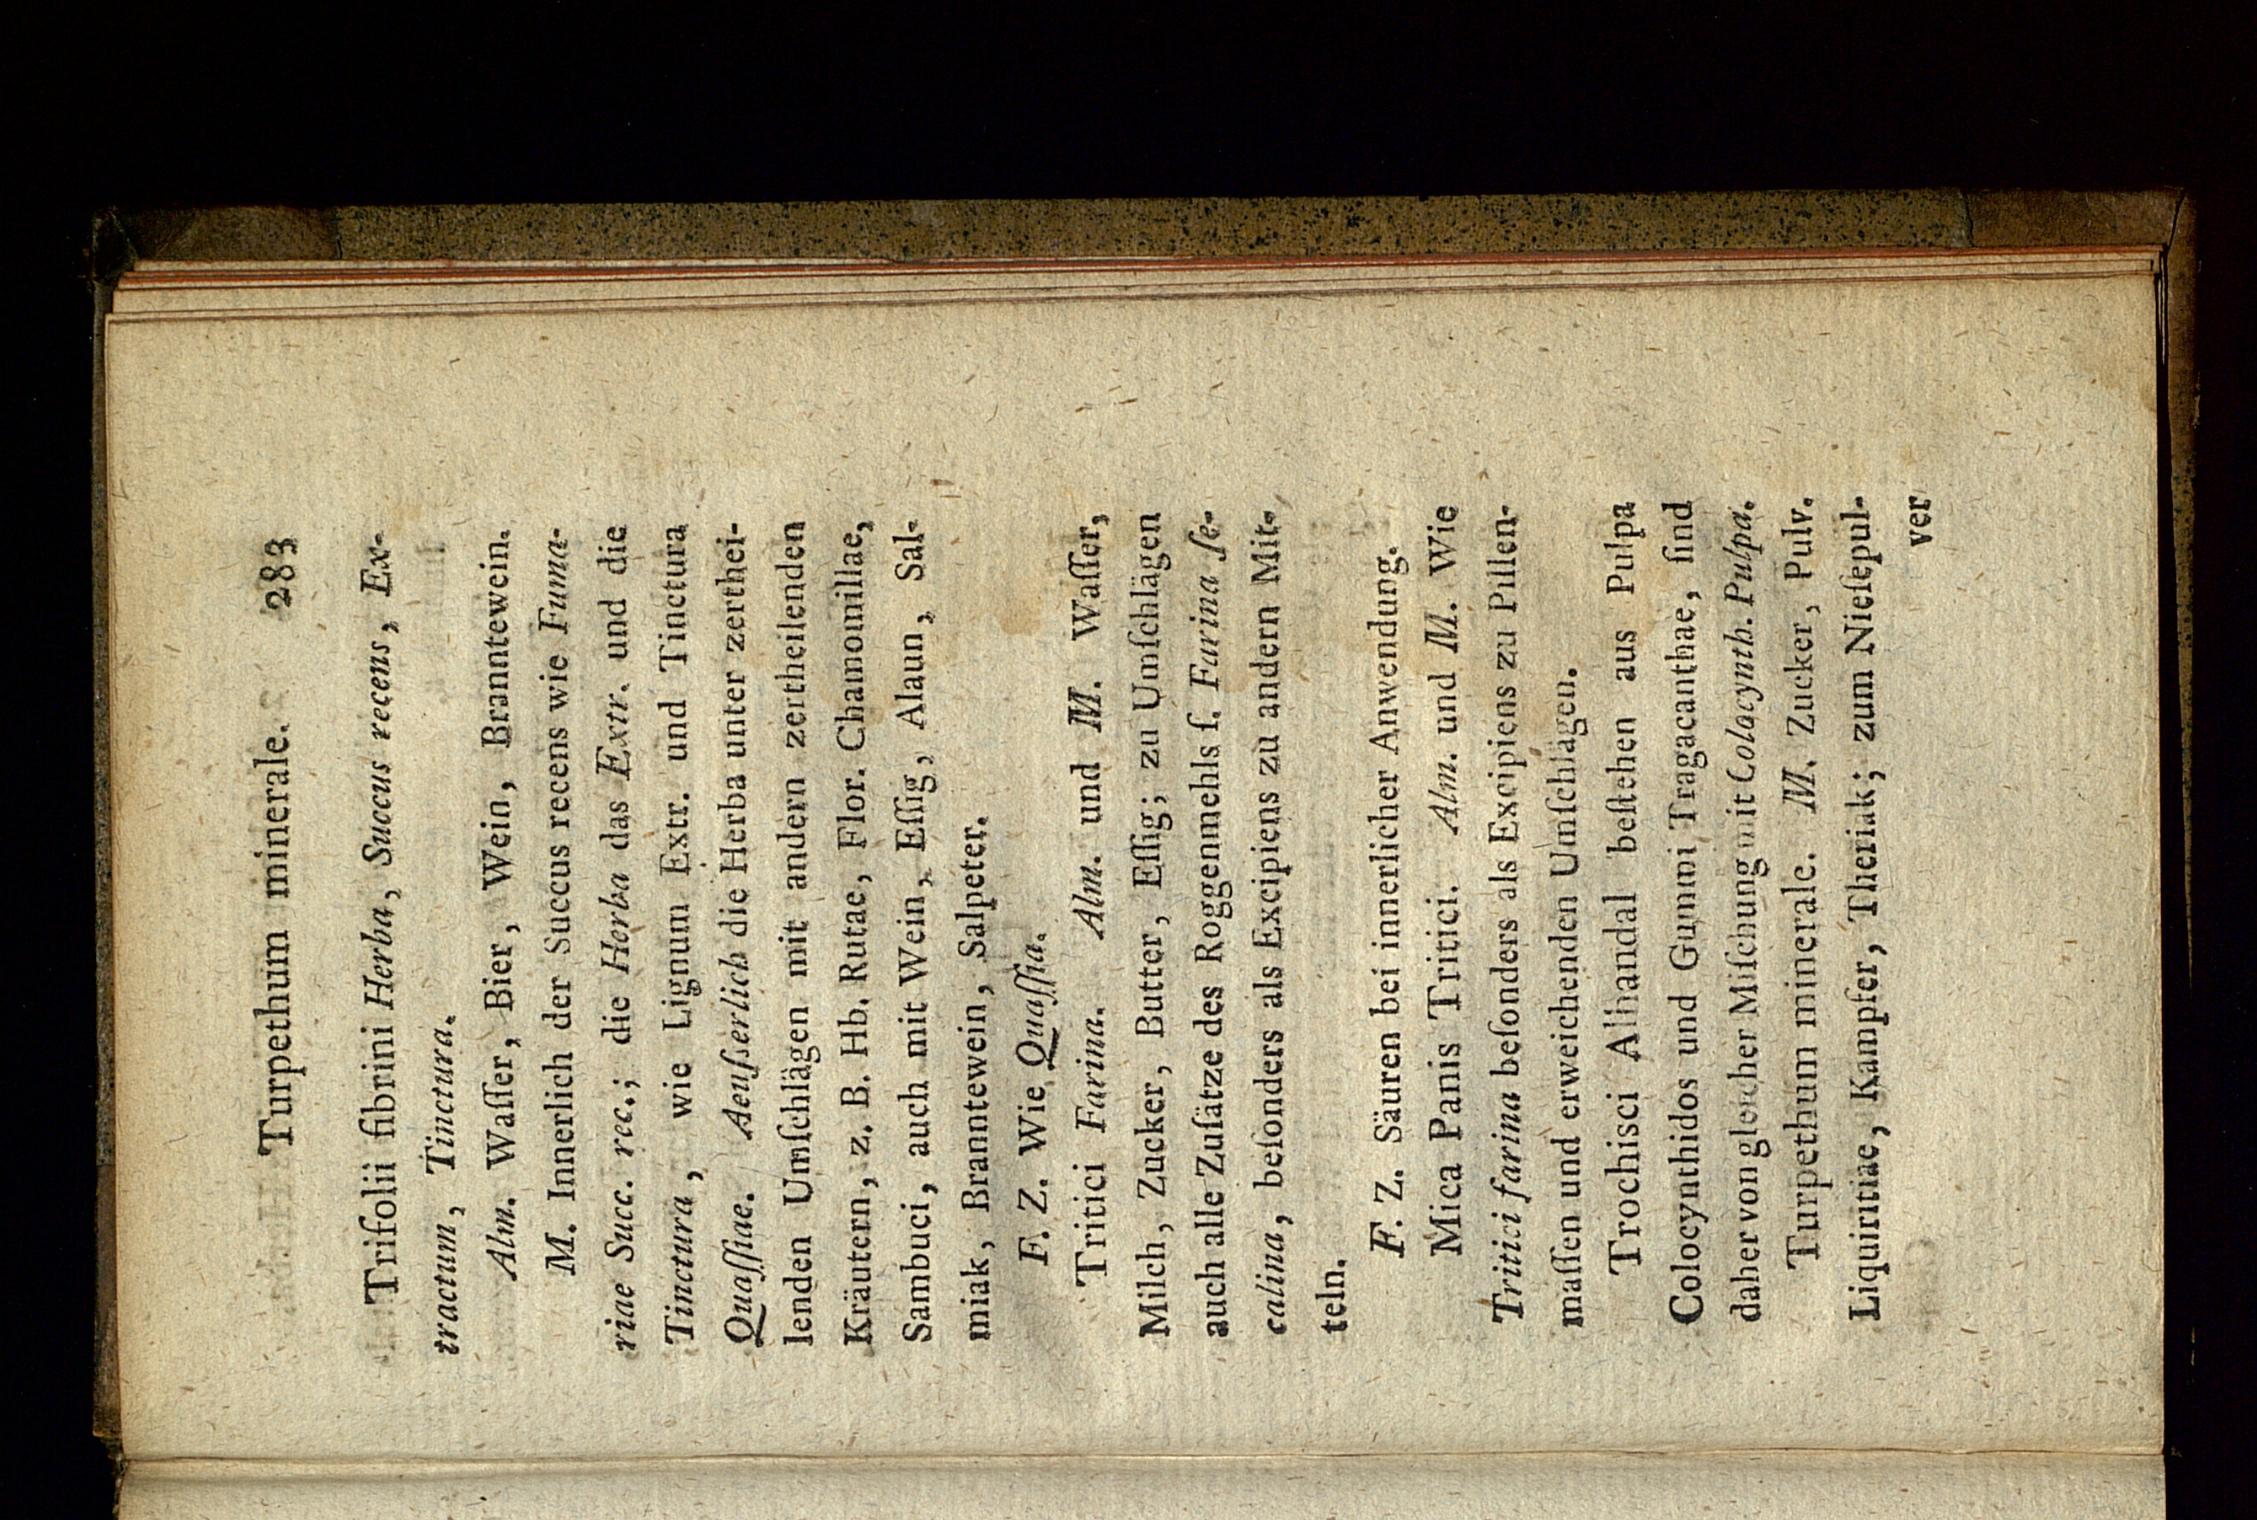 Turpethum minerale. 283
Trifolii fibrini Herba, Succus recens, Ex-
tractum, Tinctura.
Alm. Waſſer, Bier, Wein, Branntewein.
M. Innerlich der Succus recens wie Fuma-
riae Succ. rec.; die Herba das Extr. und die
Tinctura, wie Lignum Extr. und Tinctura
Quaſſiae. Aeuſserlich die Herba unter zerthei-
lenden Umſchlägen mit andern zertheilenden
Kräutern, z. B. Hb. Rutae, Flor. Chamomillae,
Sambuci, auch mit Wein, Eſſig, Alaun, Sal-
miak, Branntewein, Salpeter.
F. Z. Wie Quaſſia.
Tritici Farina. Alm. und M. Waſſer,
Milch, Zucker, Butter, Eſſig; zu Umſchlägen
auch alle Zuſätze des Roggenmehls ſ. Farina ſe-
calina, beſonders als Excipiens zu andern Mit-
teln.
F. Z. Säuren bei innerlicher Anwendung.
Mica Panis Tritici. Alm. und M. Wie
Tritici farina beſonders als Excipiens zu Pillen-
maſſen und erweichenden Umſchlägen.
Trochisci Alhandal beſtehen aus Pulpa
Colocynthidos und Gummi Tragacanthae, ſind
daher von gleicher Miſchung mit Colocynth. Pulpa.
Turpethum minerale. M. Zucker, Pulv.
Liquiritiae, Kampfer, Theriak; zum Nieſepul-
ver